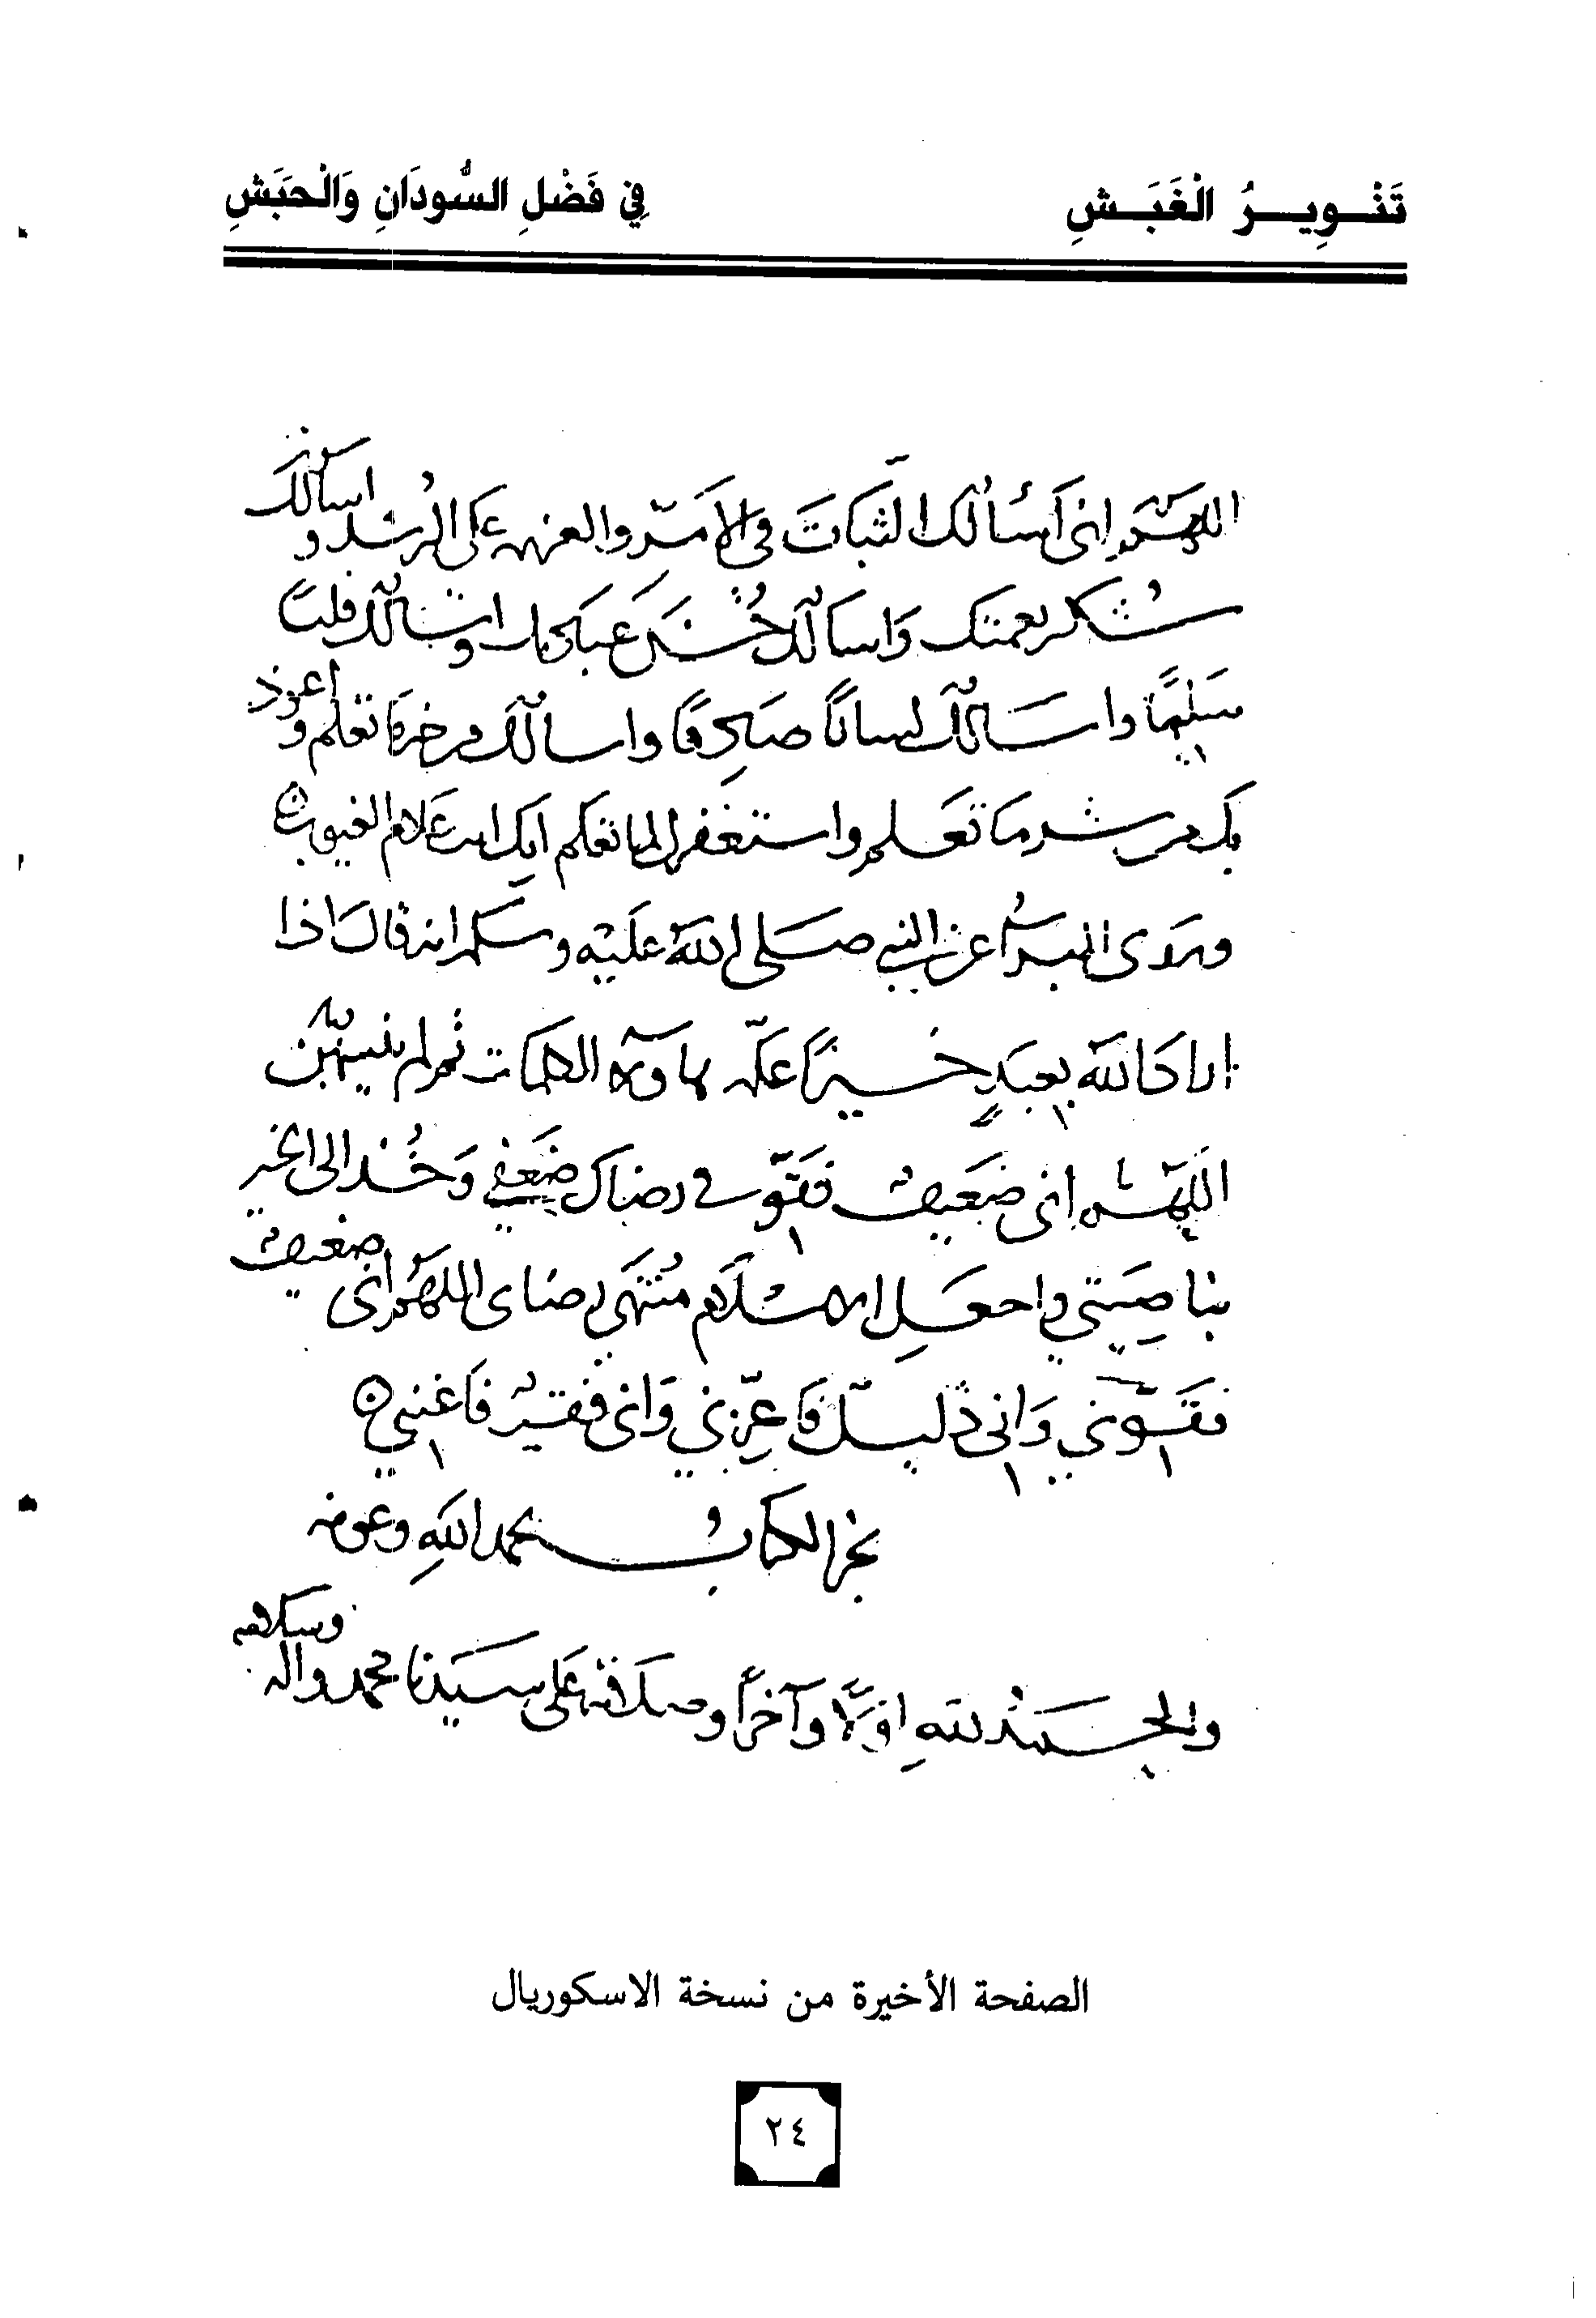 تَنْوِيرُ الْغَبَشِ فِي فَضْلِ السُّودَانِ وَالْحَبَشِ
اللهم اني أسألك الثبات في الأمر والعزيمه على الرشد و اسالك
شكر نعمتك واسالك حسن عبادتك واسالك قلبًا
سليمًا واسالك لسانًا صادقًا واسالك من خير ما تعلم و اعوذ
بك من شر ما تعلم واستغفرك لما تعلم انك انت علام الغيوب
وروى عن النبي صلى الله عليه وسلم انه قال اذا
اراد الله بعبدٍ خيرًا علمه هاولاء الكلمات ثم لم ينسهن
اللهم اني ضعيف فقوّ في رضاك ضعفي وخُذ الى الخير
بناصيتي واجعل الاسلام مُنتهى رضاي اللهم اني ضعيف
فقوّني واني ذليل فاعزّني واني فقير فاغنني
نجز الكتاب بحمد الله وعونه
والحمد لله اولًا وآخرًا وصلاته على سيدنا محمد واله وسلامه
الصفحة الأخيرة من نسخة الاسكوريال
٢٤